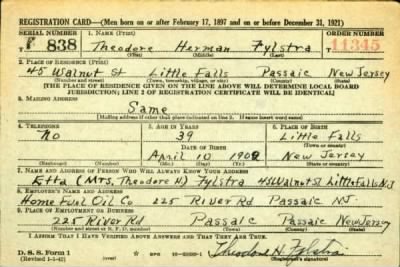 REGISTRATION CARD—(Men born on or after February 17, 1897 and on or before December 31, 1921)
SERIAL NUMBER 1. NAME (Print) ORDER NUMBER
T 838 Theodore Herman Fylstra 11345
(First) (Middle) (Last)
2. PLACE OF RESIDENCE (Print)
45 Walnut St Little Falls Passaic New Jersey
(Number and street) (Town, township, village, or city) (County) (State)
[THE PLACE OF RESIDENCE GIVEN ON THE LINE ABOVE WILL DETERMINE LOCAL BOARD
JURISDICTION; LINE 2 OF REGISTRATION CERTIFICATE WILL BE IDENTICAL]
3. MAILING ADDRESS
Same
(Mailing address if other than place indicated on line 2. If same insert word same)
4. TELEPHONE 5. AGE IN YEARS 6. PLACE OF BIRTH
No 39 Little Falls
DATE OF BIRTH (Town or county)
April 10 1902 New Jersey
(Exchange) (Number) (Mo.) (Day) (Yr.) (State or country)
7. NAME AND ADDRESS OF PERSON WHO WILL ALWAYS KNOW YOUR ADDRESS
Etta (Mrs. Theodore H) Fylstra 45 Walnut St Little Falls N.J
8. EMPLOYER'S NAME AND ADDRESS
Home Fuel Oil Co 225 River Rd Passaic NJ
9. PLACE OF EMPLOYMENT OR BUSINESS
225 River Rd Passaic Passaic New Jersey
(Number and street or R. F. D. number) (Town) (County) (State)
I AFFIRM THAT I HAVE VERIFIED ABOVE ANSWERS AND THAT THEY ARE TRUE.
D. S. S. Form 1
(Revised 1-1-42) GPO Theodore H. Fylstra